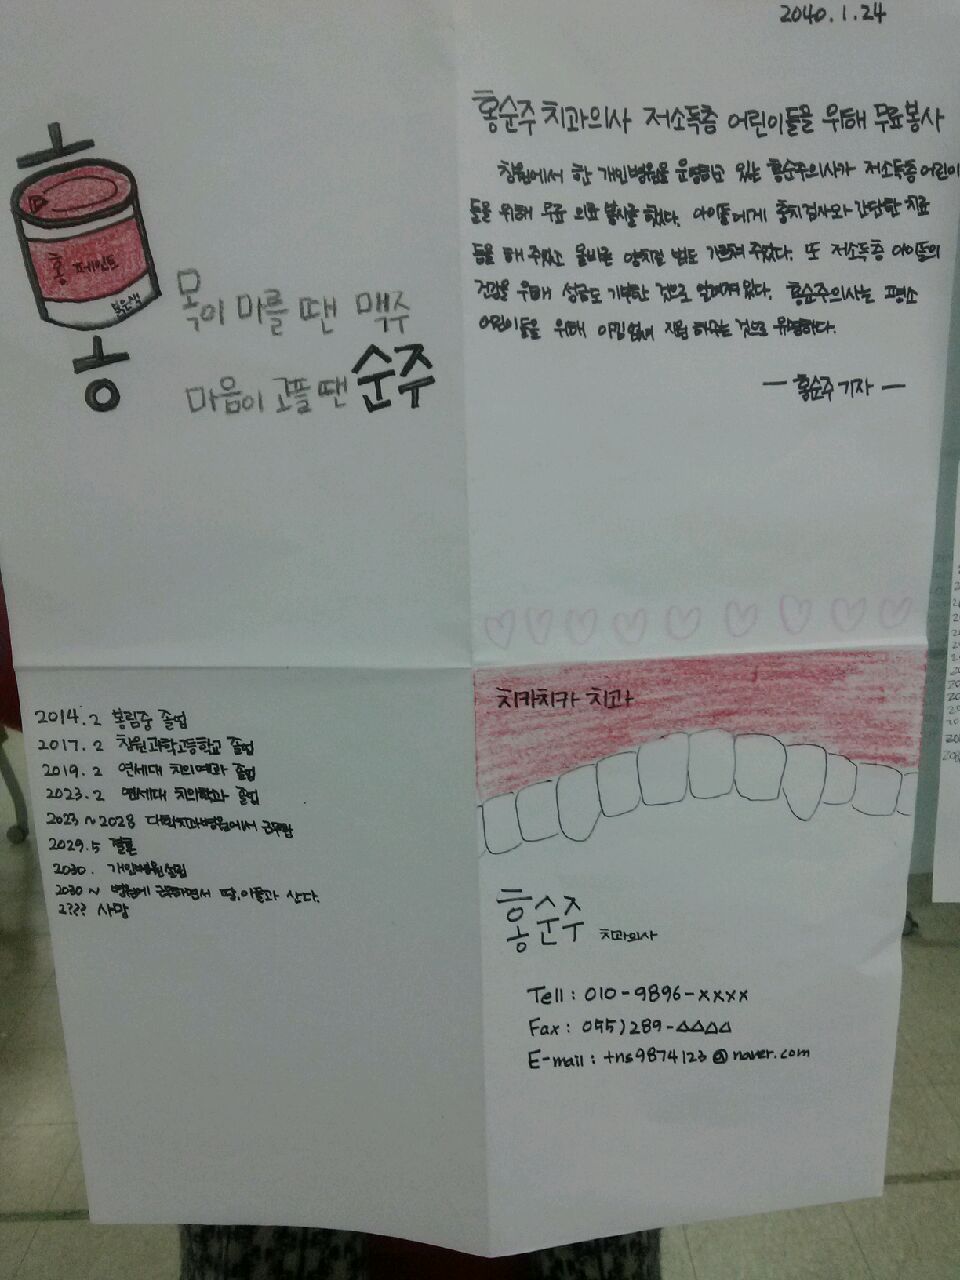 2040.1.24
홍순주 치과의사 저소득층 어린이들을 위해 무료봉사
창원에서 한 개인병원을 운영하고 있는 홍순주의사가 저소득층 어린이
들을 위해 무료 의료 봉사를 했다. 아이들에게 충치검사와 간단한 치료
등을 해 주었고 올바른 양치질 법도 가르쳐 주었다. 또 저소득층 아이들의
건강을 위해 성금도 기부한 것으로 알려져 있다. 홍순주의사는 평소
어린이들을 위해 아낌없이 지원 해주는 것으로 유명하다.
— 홍순주 기자 —
홍 페인트
붉은색
목이 마를 땐 맥주
마음이 고플 땐 순주
2014.2 봉림중 졸업
2017.2 창원과학고등학교 졸업
2019.2 연세대 치의예과 졸업
2023.2 연세대 치의학과 졸업
2023~2028 대학치과병원에서 근무함
2029.5 결혼
2030. 개인병원설립
2030~ 병원에 근무하면서 딸,아들과 산다.
2??? 사망
치카치카 치과
홍순주 치과의사
Tell : 010-9896-xxxx
Fax : 055)289-△△△△
E-mail : tns9874123@naver.com